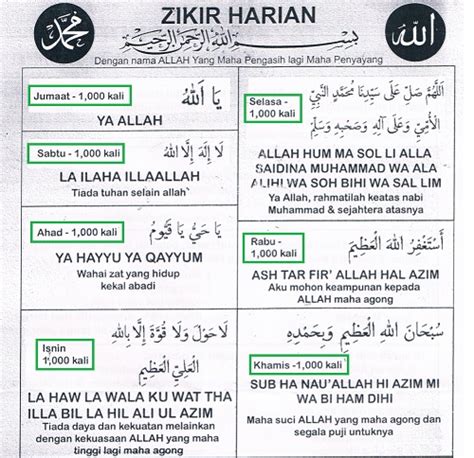 ZIKIR HARIAN
محمد
بسم الله الرحمن الرحيم
الله
Dengan nama ALLAH Yang Maha Pengasih lagi Maha Penyayang
Jumaat - 1,000 kali
يَا اَللهُ
YA ALLAH
Sabtu - 1,000 kali
لَا إِلَهَ إِلَّا اللهُ
LA ILAHA ILLAALLAH
Tiada tuhan selain allah
Ahad - 1,000 kali
يَا حَيُّ يَا قَيُّومُ
YA HAYYU YA QAYYUM
Wahai zat yang hidup
kekal abadi
Isnin
1,000 kali
لَا حَوْلَ وَلَا قُوَّةَ إِلَّا بِاللهِ
الْعَلِيِّ الْعَظِيْمِ
LA HAW LA WALA KU WAT THA
ILLA BIL LA HIL ALI UL AZIM
Tiada daya dan kekuatan melainkan
dengan kekuasaan ALLAH yang maha
tinggi lagi maha agong
Selasa -
1,000 kali
اَللَّهُمَّ صَلِّ عَلَى سَيِّدِنَا مُحَمَّدٍ النَّبِيِّ
الْأُمِّيِّ وَعَلَى آلِهِ وَصَحْبِهِ وَسَلِّمْ
ALLAH HUM MA SOL LI ALLA
SAIDINA MUHAMMAD WA ALA
ALIHI WA SOH BIHI WA SAL LIM
Ya Allah, rahmatilah keatas nabi
Muhammad & sejahtera atasnya
Rabu -
1,000 kali
أَسْتَغْفِرُ اللهَ الْعَظِيْمَ
ASH TAR FIR' ALLAH HAL AZIM
Aku mohon keampunan kepada
ALLAH maha agong
سُبْحَانَ اللهِ الْعَظِيْمِ وَبِحَمْدِهِ
Khamis -1,000 kali
SUB HA NAU'ALLAH HI AZIM MI
WA BI HAM DIHI
Maha suci ALLAH yang maha agong dan
segala puji untuknya